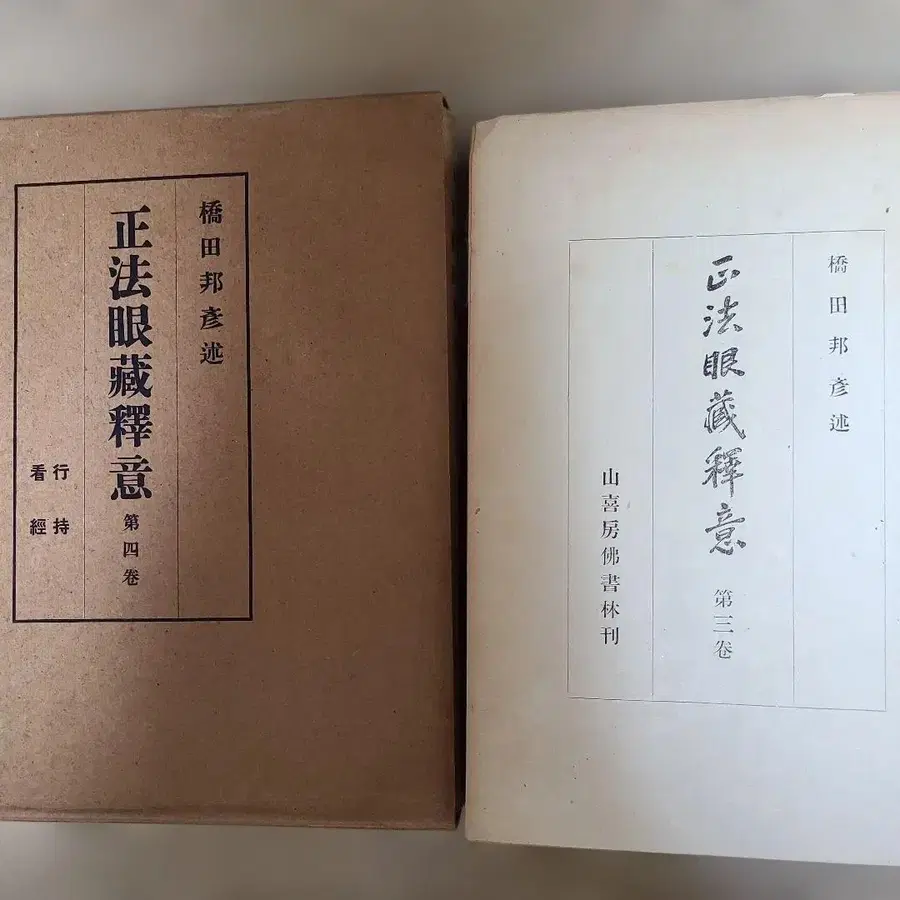 橋田邦彥述
正法眼藏釋意 第四卷
行持
看經
橋田邦彥述
正法眼藏釋意 第三卷
山喜房佛書林刊